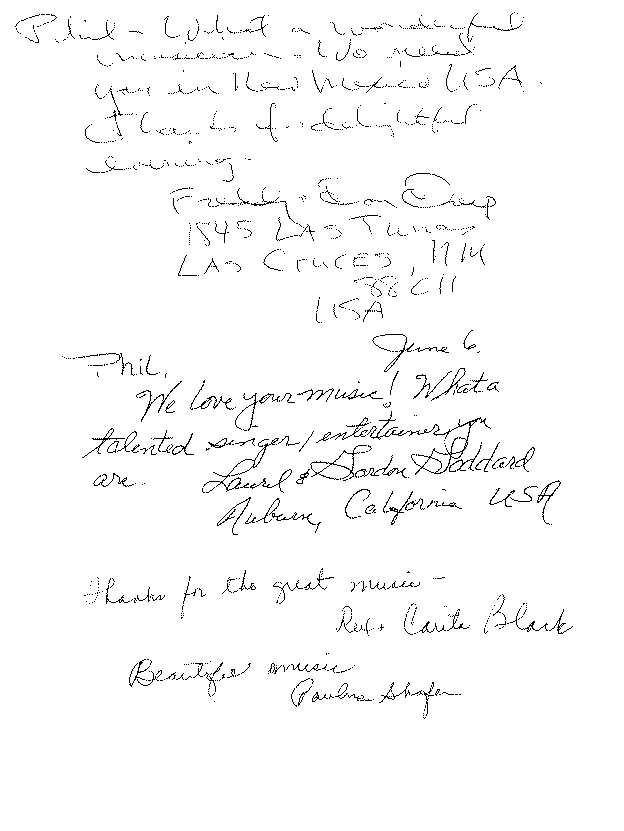 Phil - What a wonderful
musician. We need
you in New Mexico USA.
Thanks for delightful
evening.
Freddy + Don
1845 LAS Tunas
LAS CRUCES, NM
88011
USA
June 6.
Phil,
We love your music! What a
talented singer/entertainer you
are. Laurel & Gordon Goddard
Auburn, California USA
Thanks for the great music -
Rex + Carita Black
Beautiful music
Pauline Shafer